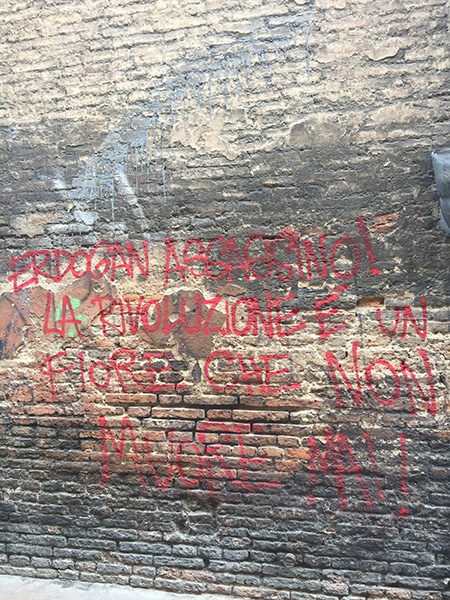 ERDOGAN ASSASSINO!
LA RIVOLUZIONE È UN
FIORE CHE NON
MUORE MAI!